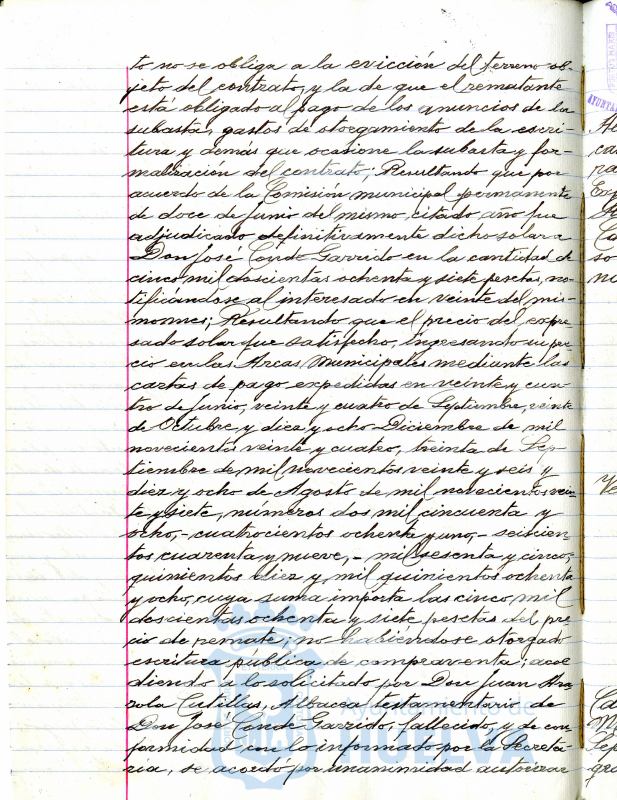 to no se obliga a la evicción del terreno ob-
jeto del contrato, y la de que el rematante
está obligado al pago de los anuncios de la
subasta, gastos de otorgamiento de la escri-
tura y demás que ocasione la subasta y for-
malización del contrato; Resultando que por
acuerdo de la Comisión municipal permanente
de doce de Junio del mismo citado año fue
adjudicado definitivamente dicho solar a
Don José Conde Garrido en la cantidad de
cinco mil doscientas ochenta y siete pesetas, no-
tificándose al interesado en veinte del mis-
mo mes; Resultando que el precio del expre-
sado solar fue satisfecho, ingresando su pre-
cio en las Arcas Municipales mediante las
cartas de pago expedidas en veinte y cua-
tro de Junio, veinte y cuatro de Septiembre, veinte
de Octubre, y diez y ocho Diciembre de mil
novecientos veinte y cuatro, treinta de Sep-
tiembre de mil novecientos veinte y seis y
diez y ocho de Agosto de mil novecientos vein-
te y siete, números dos mil cincuenta y
ocho,- cuatrocientos ochenta y uno,- seiscien-
tos cuarenta y nueve,- mil sesenta y cinco,-
quinientos diez y mil quinientos ochenta
y ocho, cuya suma importa las cinco mil
doscientas ochenta y siete pesetas del pre-
cio de remate; no habiéndose otorgado
escritura pública de compraventa; acce-
diendo a lo solicitado por Don Juan
Cutillas, Albacea testamentario de
Don José Conde Garrido, fallecido, y de con-
formidad con lo informado por la Secreta-
ría, se acordó por unanimidad autorizar
Ayuntamiento de
HUELVA